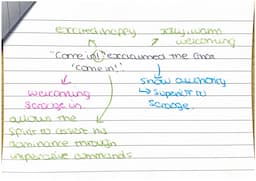 excited, happy
jolly, warm
welcoming
"Come in!" exclaimed the Ghost
'come in!'.
welcoming
Scrooge in.
Show authority
↳ superior to
Scrooge.
allows the
spirit to assert his
dominance through
imperative commands